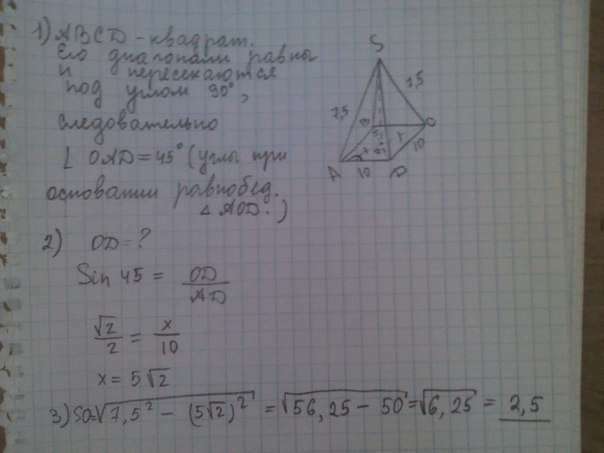 1) ABCD - квадрат.
Его диагонали равны
и пересекаются
под углом 90°,
следовательно
∠ OAD = 45° (углы при
основании равнобед.
△ AOD.)
S
7,5
7,5
A
10
D
10
2) OD = ?
Sin 45 = OD/AD
√2/2 = x/10
x = 5√2
3) SO = √(7,5² − (5√2)²) = √(56,25 − 50) = √6,25 = 2,5